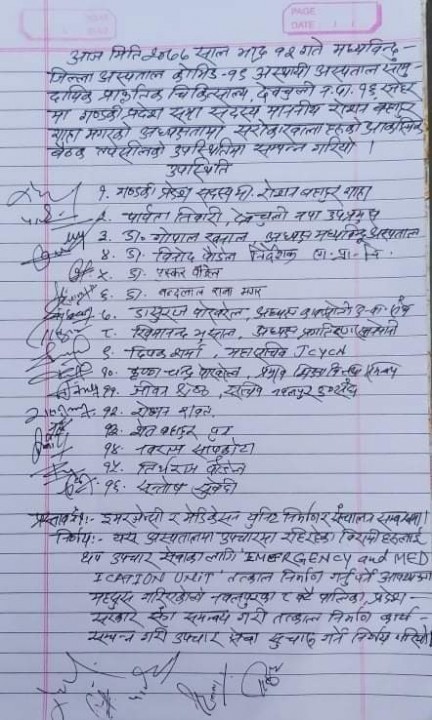 PAGE
DATE
आज मिति २०७७ साल भाद्र १२ गते मध्यविन्दु
जिल्ला अस्पताल कोभिड-१९ अस्थायी अस्पताल सामु-
दायिक प्राकृतिक चिकित्सालय, देवचुली न.पा. १६ रजहर
मा गण्डकी प्रदेश सभा सदस्य माननीय रोशन बहादुर
गाहा मगरको अध्यक्षतामा सरोकारवालाहरुको आकस्मिक
बैठक तपसिलको उपस्थितिमा सम्पन्न गरियो ।
उपस्थिति
१. गण्डकी प्रदेश सदस्य मा. रोशन बहादुर गाहा
२. पार्वता तिवारी, देवचुली नपा उपप्रमुख
३. डा. गोपाल अध्यक्ष मध्यविन्दु अस्पताल
४. डा. विनोद पौडेल निर्देशक
५. डा. पौडेल
६. डा. नन्दलाल राना मगर
७. पोखरेल, अध्यक्ष
८. खिमानन्द भुसाल, अध्यक्ष
९. दिपक शर्मा, महासचिव JCYCN
१०. कृष्ण चन्द्र पोखरेल, प्रमुख
११. जीवन श्रेष्ठ, सचिव नवलपुर
१२. रोशन
१३. बहादुर
१४. सापकोटा
१५. तिर्थराज पौडेल
१६. सन्तोष सुवेदी
प्रस्ताव नं १:- इमरजेन्सी र मेडिकेसन युनिट निर्माण र संचालन सम्बन्धमा ।
निर्णय:- यस अस्पतालमा उपचाररत रहिरहेका विरामीहरुलाई
थप उपचार सेवाका लागि 'EMERGENCY and MED
ICATION UNIT' तत्काल निर्माण गर्नुपर्ने आवश्यकता
महसुस गरिएकोले नवलपुरका ८ वटै पालिका, प्रदेश
सरकार सँग समन्वय गरी तत्काल निर्माण कार्य
सम्पन्न गरी उपचार सेवा सुचारु गर्ने निर्णय गरियो ।